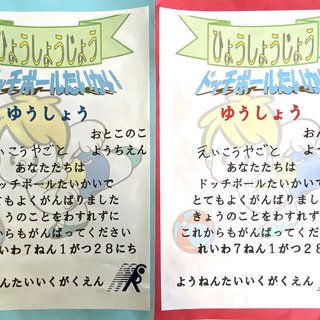 ひょうしょうじょう
ドッチボールたいかい
ゆうしょう
おとこのこ
えぃこうやごと ようちえん
あなたたちは
ドッチボールたいかいで
てもよくがんばりました
うのことをわすれずに
からもがんばってください
れいわ7ねん1がつ28にち
んたいいくがくえん
ひょうしょうじょう
ドッチボールたいか
ゆうしょう
おん
えぃこうやごと よう
あなたたちは
ドッチボールたいかいで
とてもよくがんばりました
きょうのことをわすれずに
これからもがんばってくださ
れいわ7ねん1がつ28に
ようねんたいいくがくえん